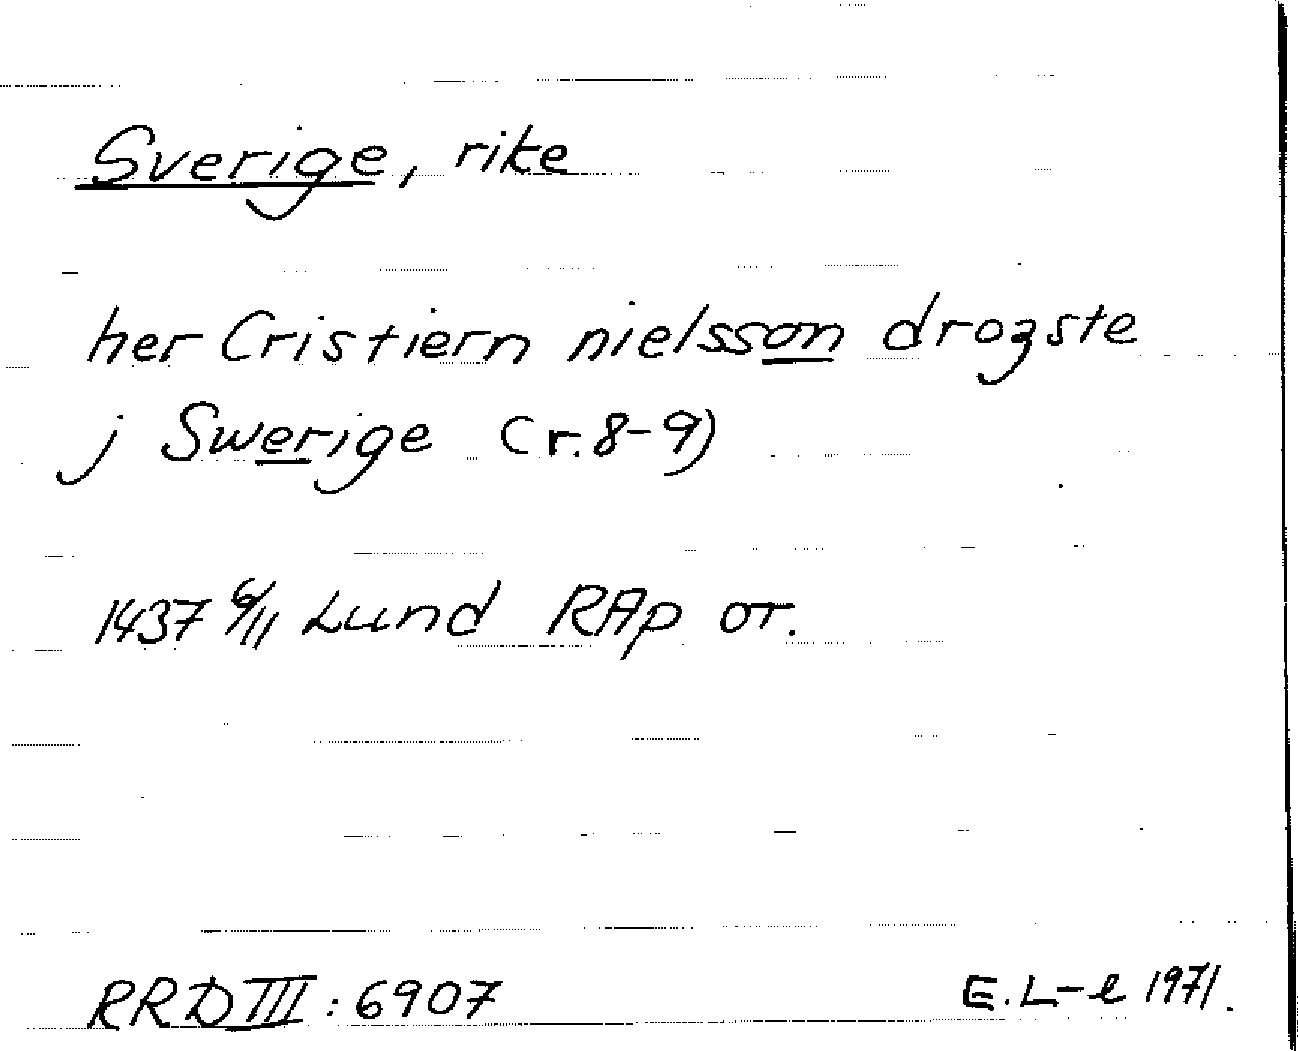 Sverige, rike
her Cristiern nielsson drogste
j Swerige (r. 8-9)
1437 6/11 Lund RAp or.
RRD III: 6907
E. L-e 1971.